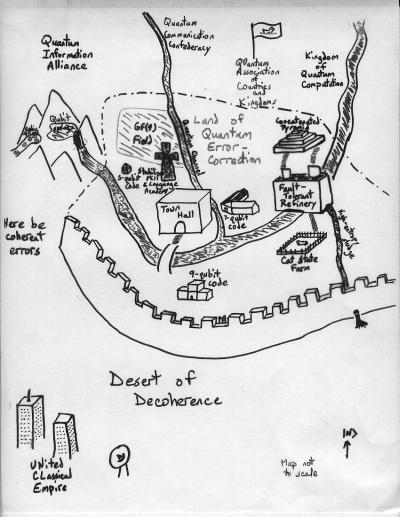 Quantum
Communication
Confederacy
Quantum
Information
Alliance
Quantum
Association
of
Countries
and
Kingdoms
Kingdom
of
Quantum
Computation
Qubit
Springs
GF(4)
Field
Land of
Quantum
Error-
Correction
Concatenated
Pyramid
Quantum Channel
5-qubit
code
& Language
Academy
Town
Hall
7-qubit
code
Fault-
Tolerant
Refinery
Cat State
Farm
Here be
coherent
errors
9-qubit
code
Desert of
Decoherence
UNited
CLassical
Empire
Map not
to scale